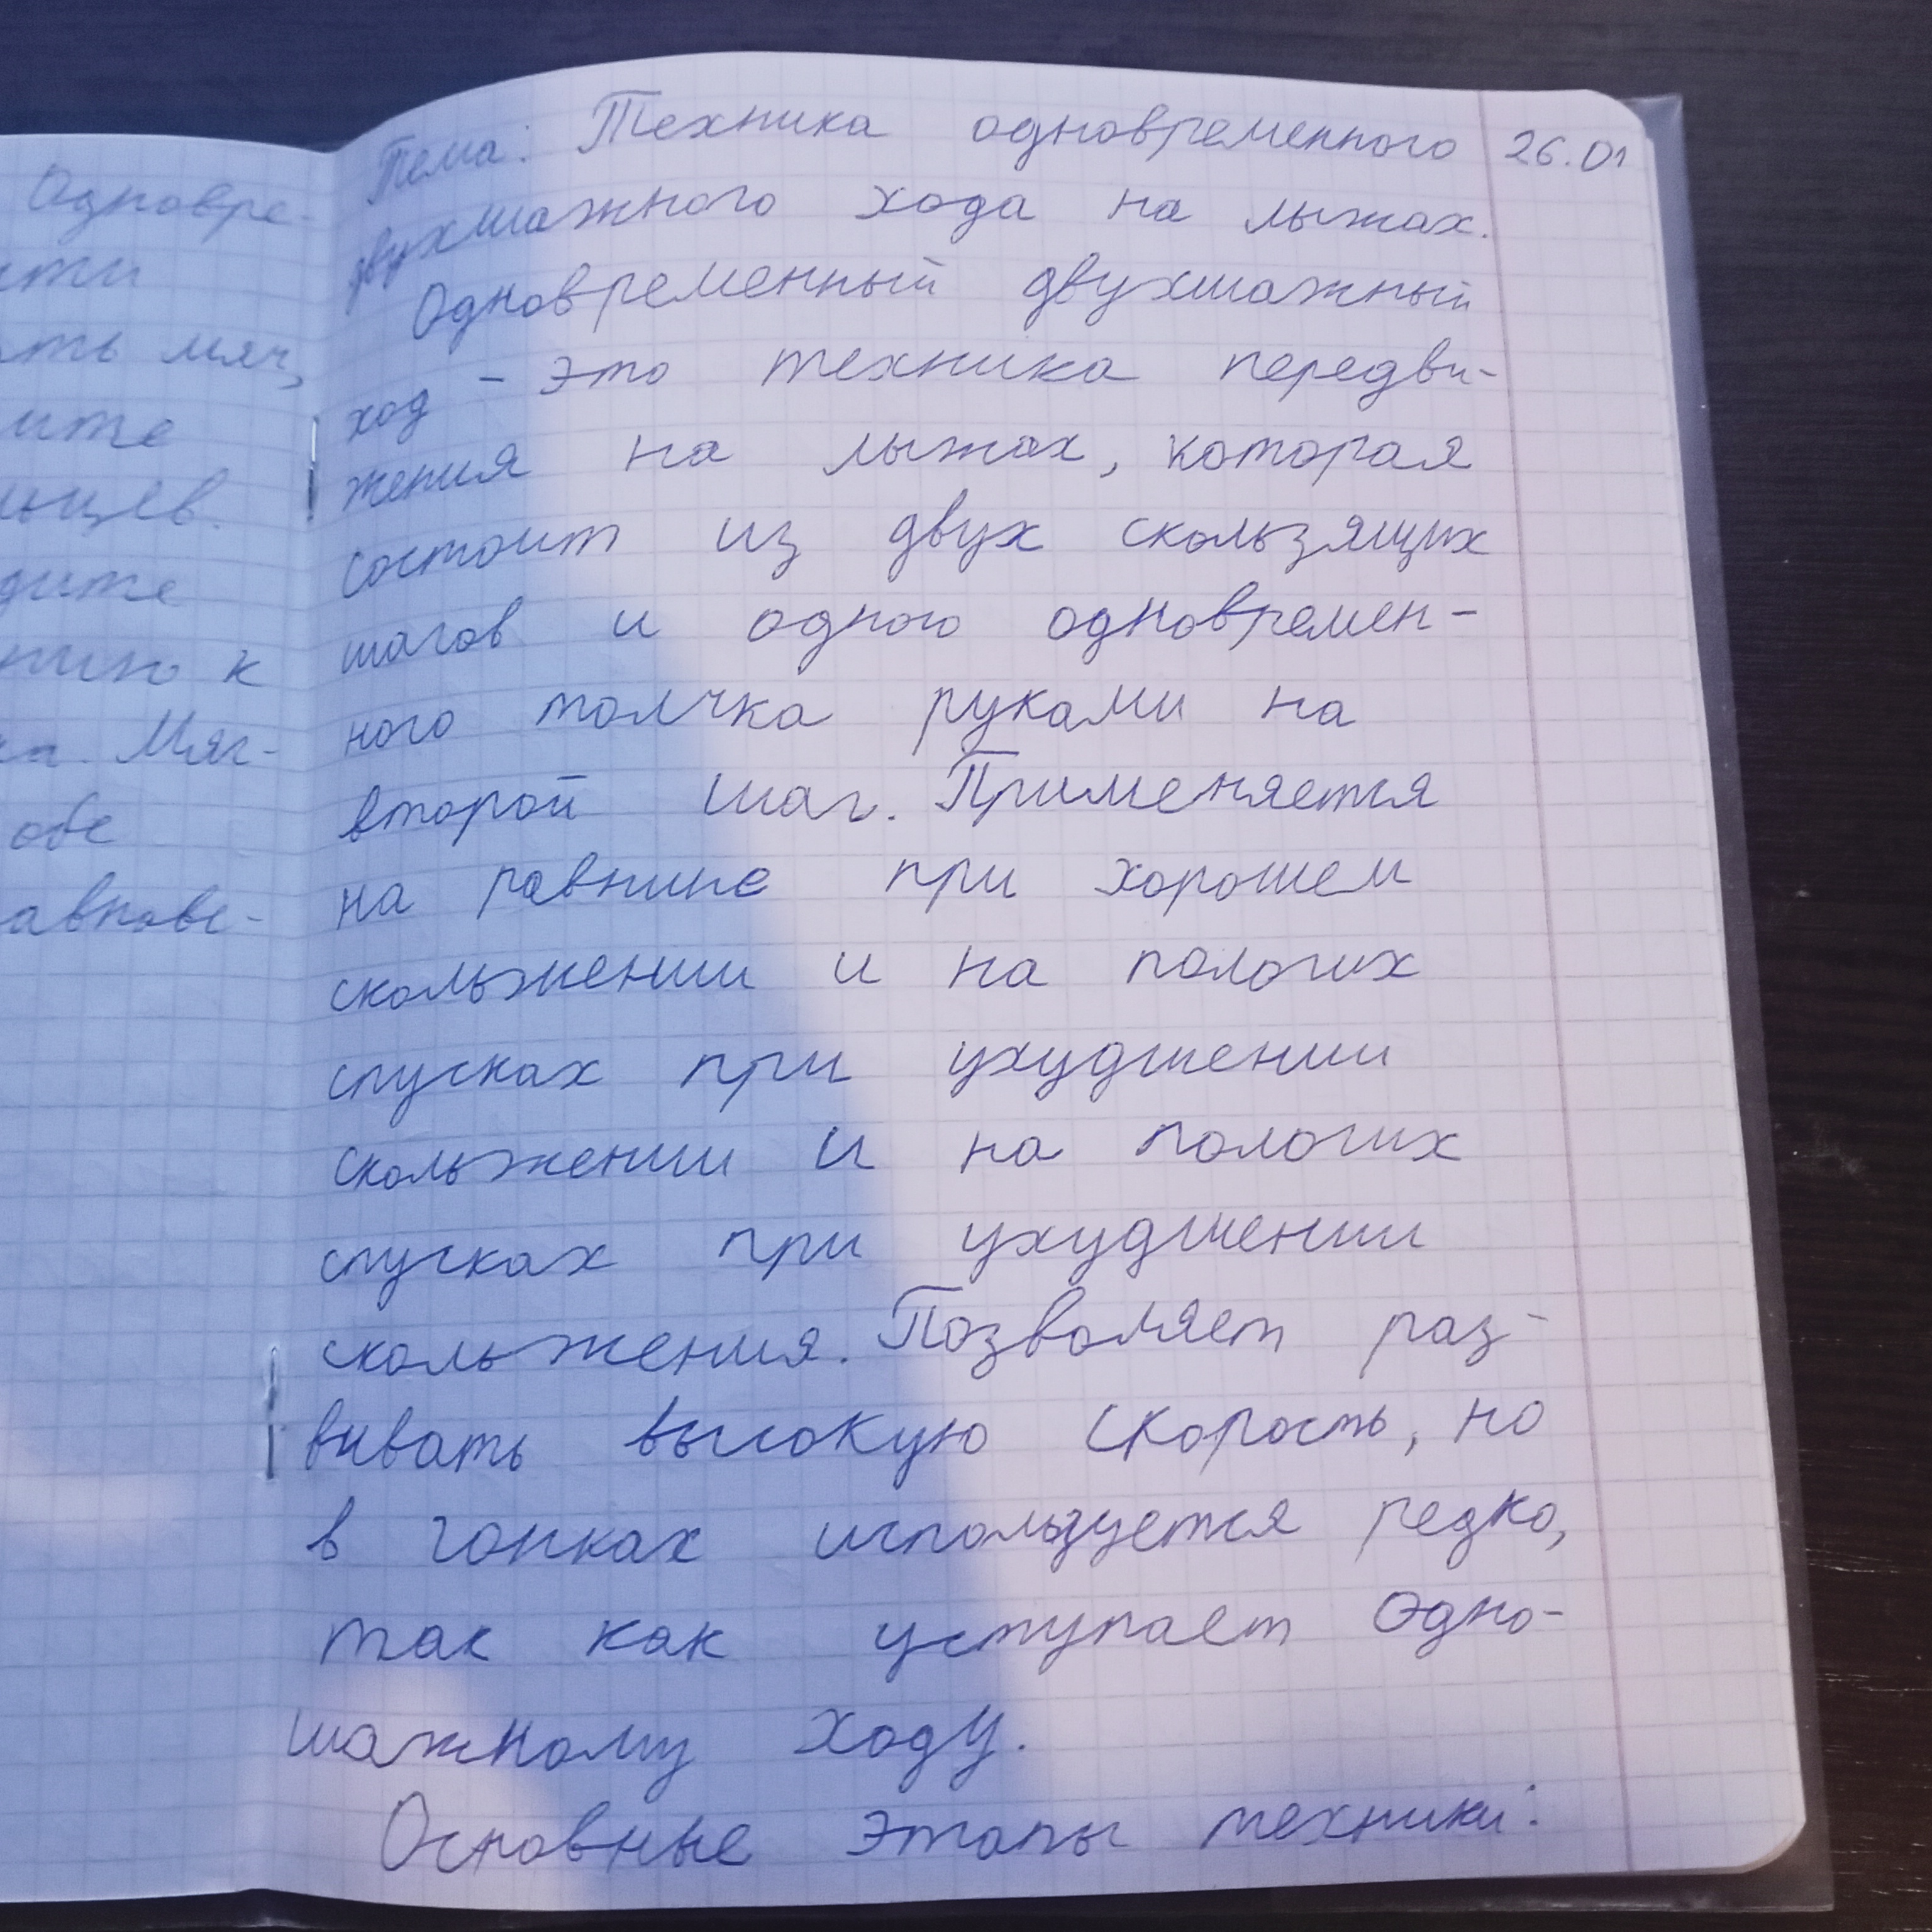 Одновре-
ть мяч,
ите
дите
к
Мяг-
обе
Тема: Техника одновременного 26.01
двухшажного хода на лыжах.
Одновременный двухшажный
ход - это техника передви-
жения на лыжах, которая
состоит из двух скользящих
шагов и одного одновремен-
ного толчка руками на
второй шаг. Применяется
на равнине при хорошем
скольжении и на пологих
спусках при ухудшении
скольжении и на пологих
спусках при ухудшении
скольжения. Позволяет раз-
вивать высокую скорость, но
в гонках используется редко,
так как уступает одно-
шажному ходу.
Основные этапы техники: